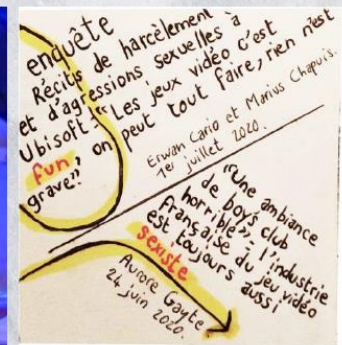 enquête
Récits de harcèlement
et d'agressions sexuelles à
Ubisoft: "Les jeux vidéo c'est
fun, on peut tout faire, rien n'est
grave"
Erwan Cario et Marius Chapuis.
1er juillet 2020.
"Une ambiance
de boy's club
horrible" - l'industrie
française du jeu vidéo
est toujours aussi
sexiste
Aurore Gayte
24 juin 2020.